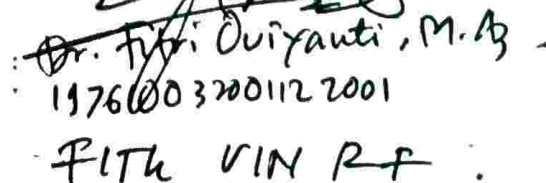 : Dr. Fitri Oviyanti, M.Ag
: 197610032001122001
FITK UIN RF.